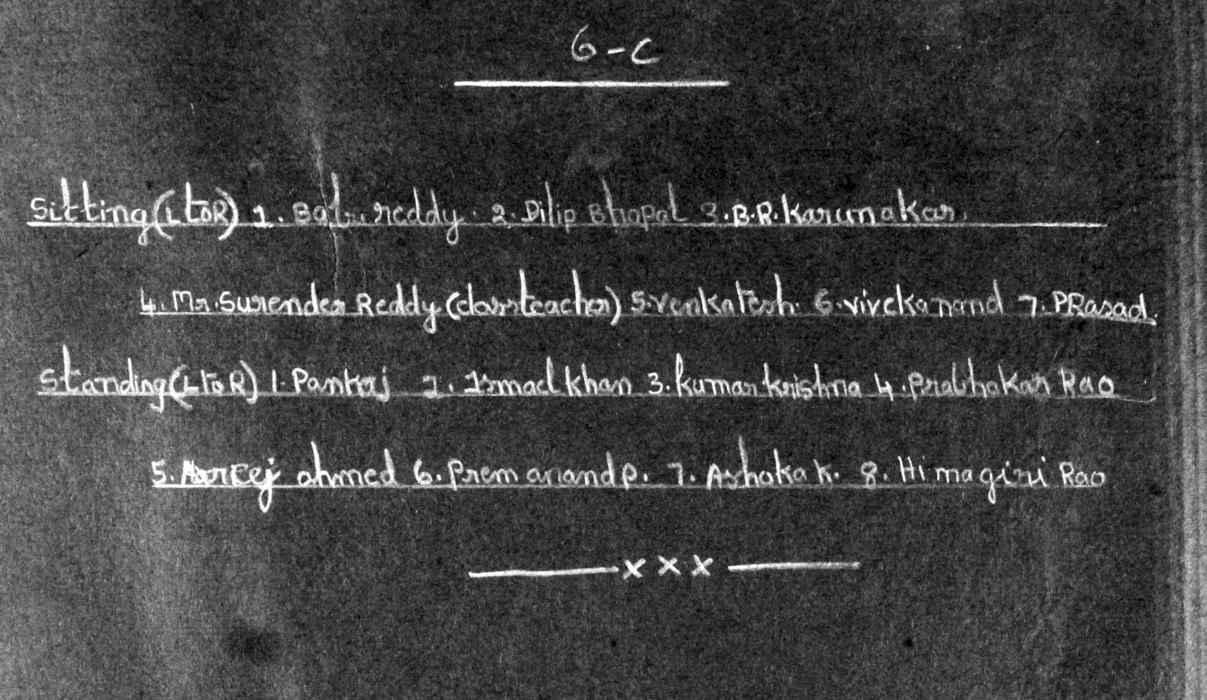 6-C
Sitting (L to R) 1. reddy. 2. Dilip Bhopal 3. B.R. Karunakar.
4. Mr. Surender Reddy (classteacher) 5. Venkatesh. 6. vivekanand 7. PRasad.
Standing (L to R) 1. Pankaj 2. Ismail khan 3. kumar krishna 4. Prabhakar Rao
5. ahmed 6. Prem anand p. 7. Ashoka k. 8. Himagiri Rao
x x x